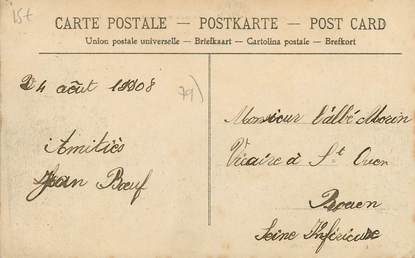 15t
CARTE POSTALE — POSTKARTE — POST CARD
Union postale universelle — Briefkaart — Cartolina postale — Brefkort
24 août 1908
79)
Monsieur l'abbé Morin
Vicaire à St Ouen
Rouen
Seine Inférieure
Amitiés
Jean Bœuf